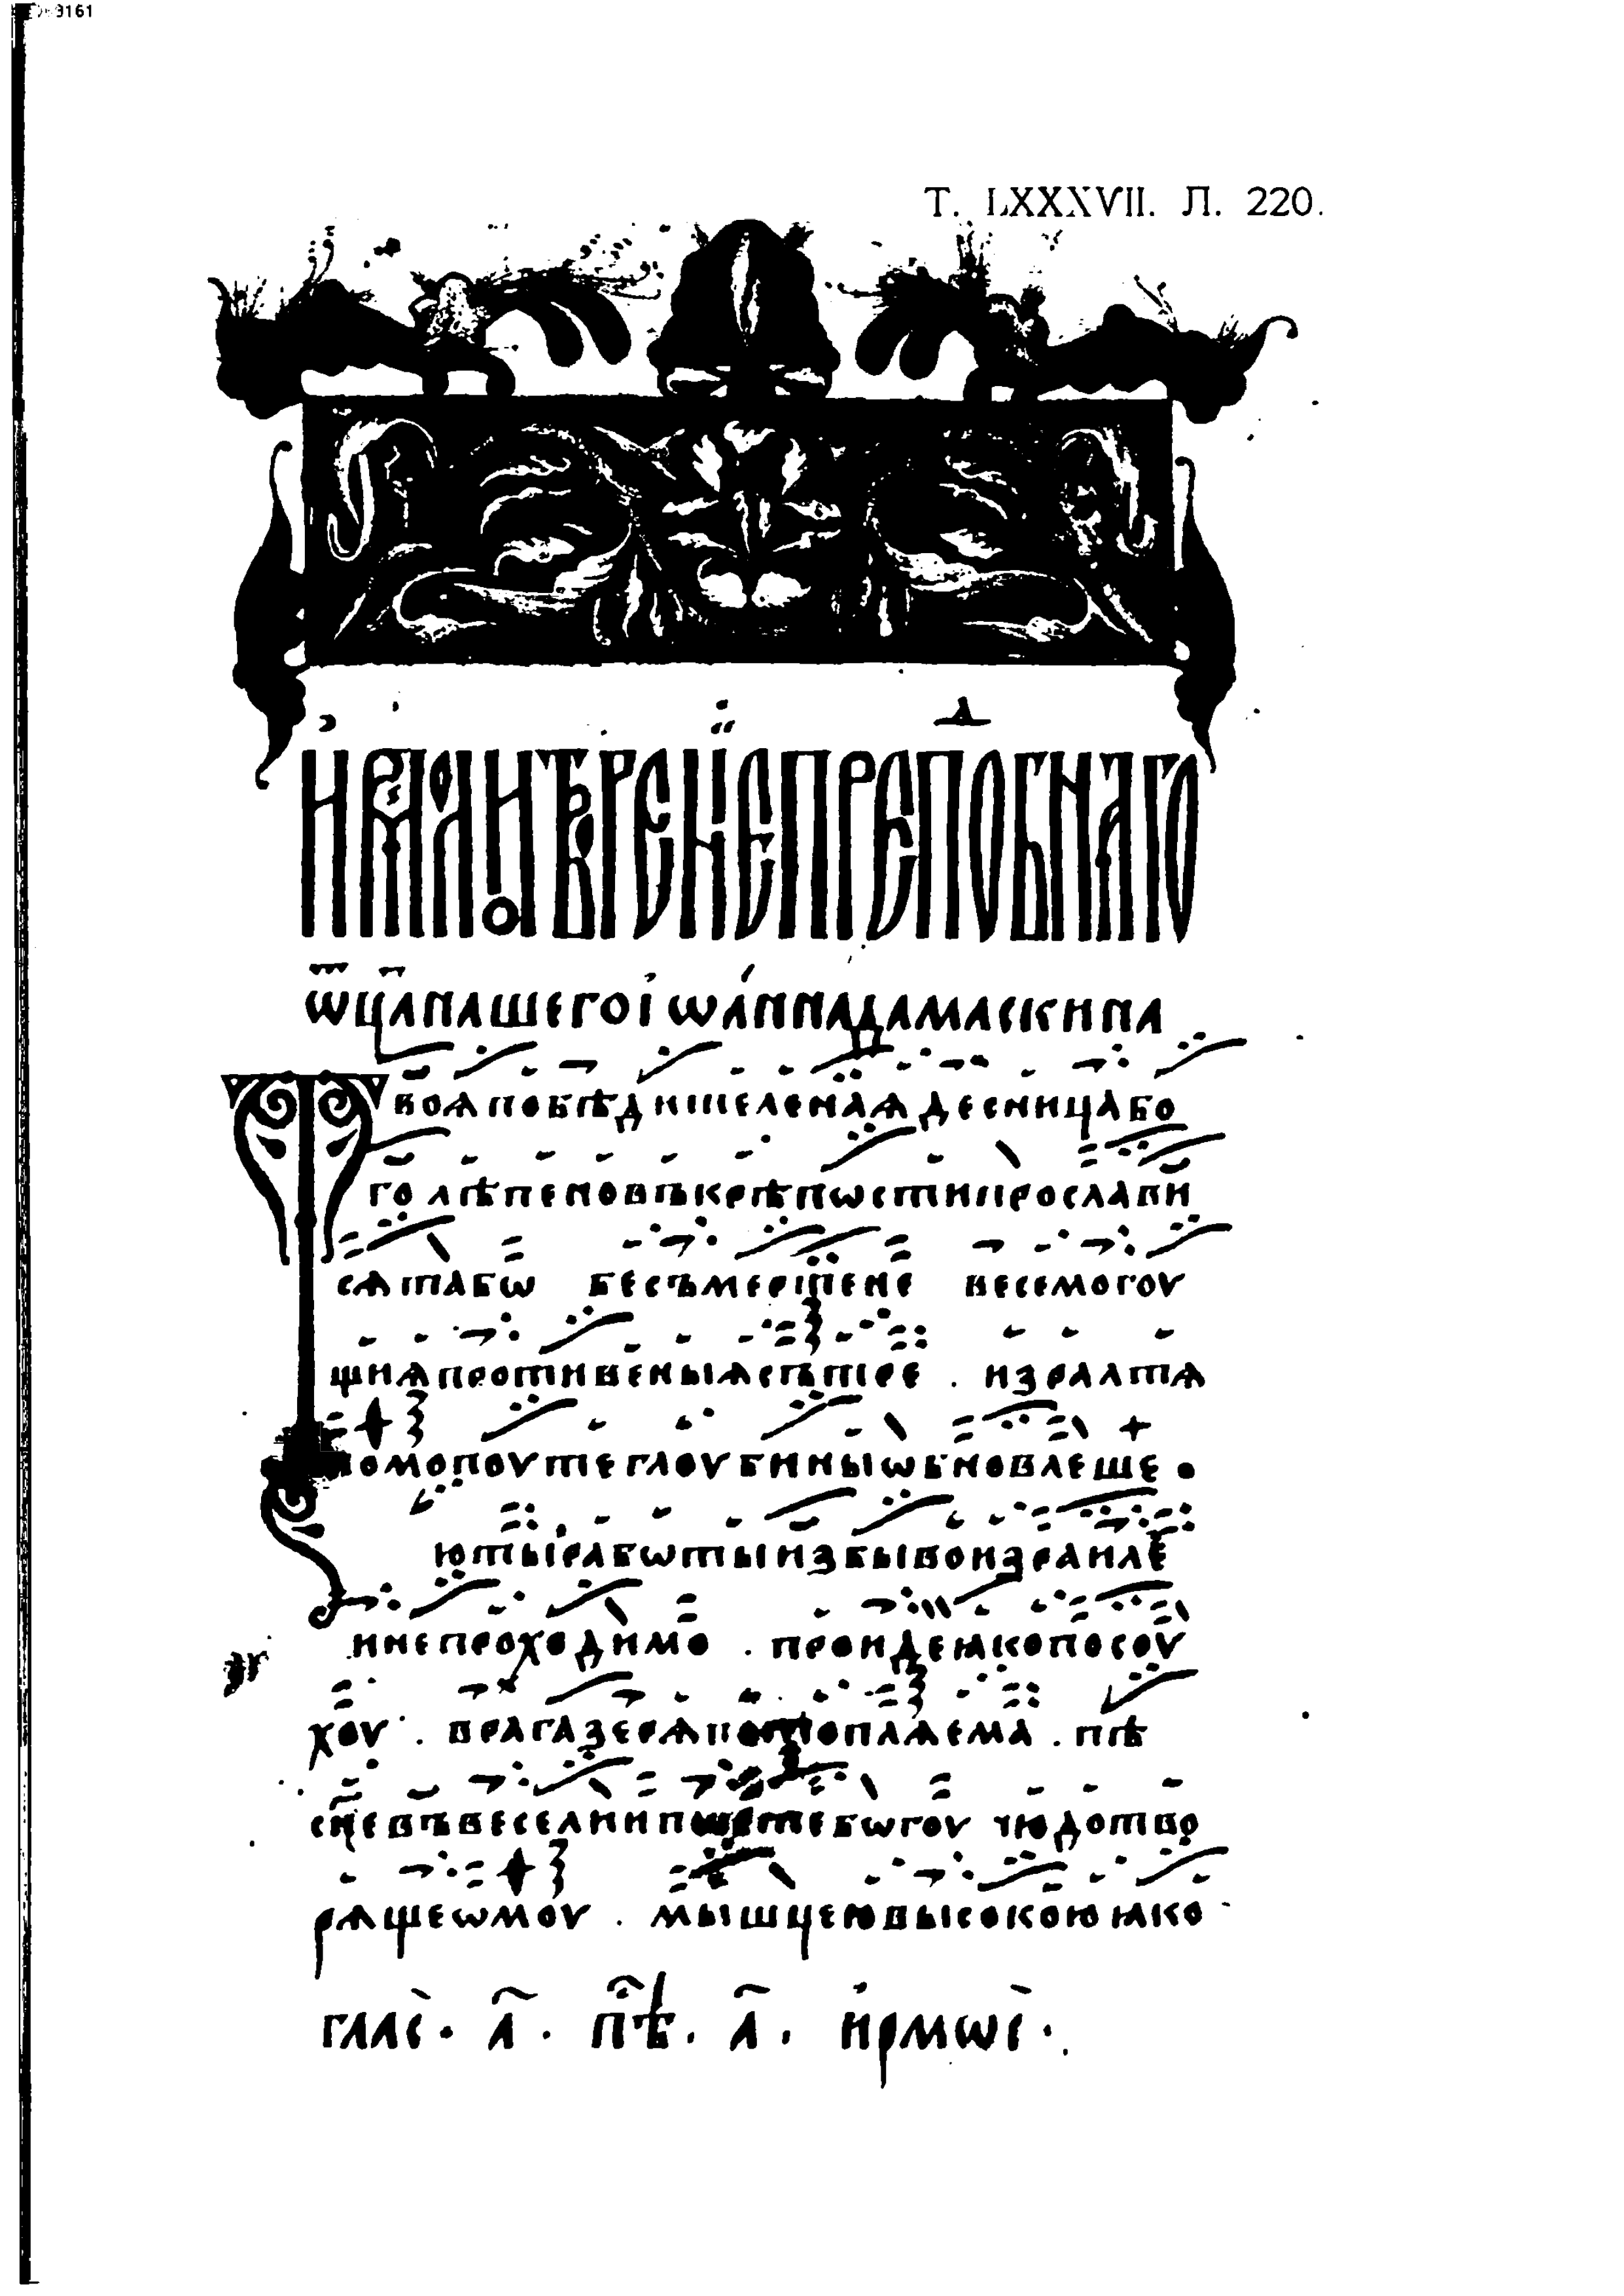 9161
Т. LXXXVII. Л. 220.
ѿц҃а нашего іѡа́нна дамаскина
воѧ побѣдишеленаѧ десница бо
голѣпеновъкрѣпѡстипрослави
сѧ табѡ бесъмерштене весемогоу
щиѧпротивеныѧсътре . изралтѧ
номопоутеглоубиныѡбновлеше .
ютыработыизбывоизраиле
инепроходимо . проидеꙗкопосоу
хоу . врагазерѧпотопл
ѧема . пѣ
сневъвеселии бѡгоу чюдотво
рѧщеѡмоу . мышцеювысокоюꙗко
глас . а҃ . пѣ . а҃ . и҆рмѡс .